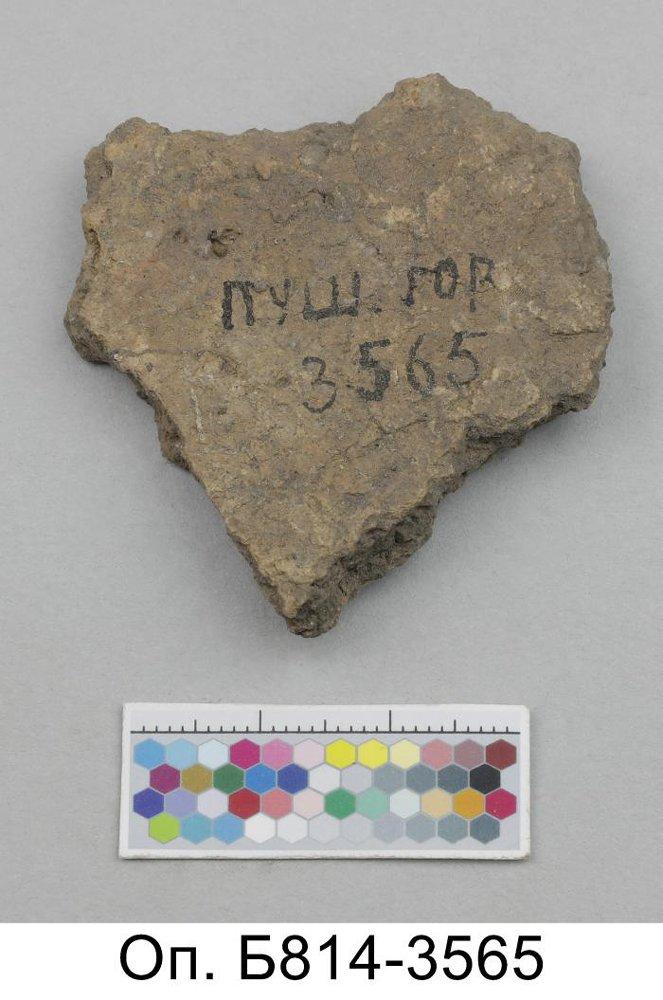 ПУШ. ГОР
3565
Оп. Б814-3565